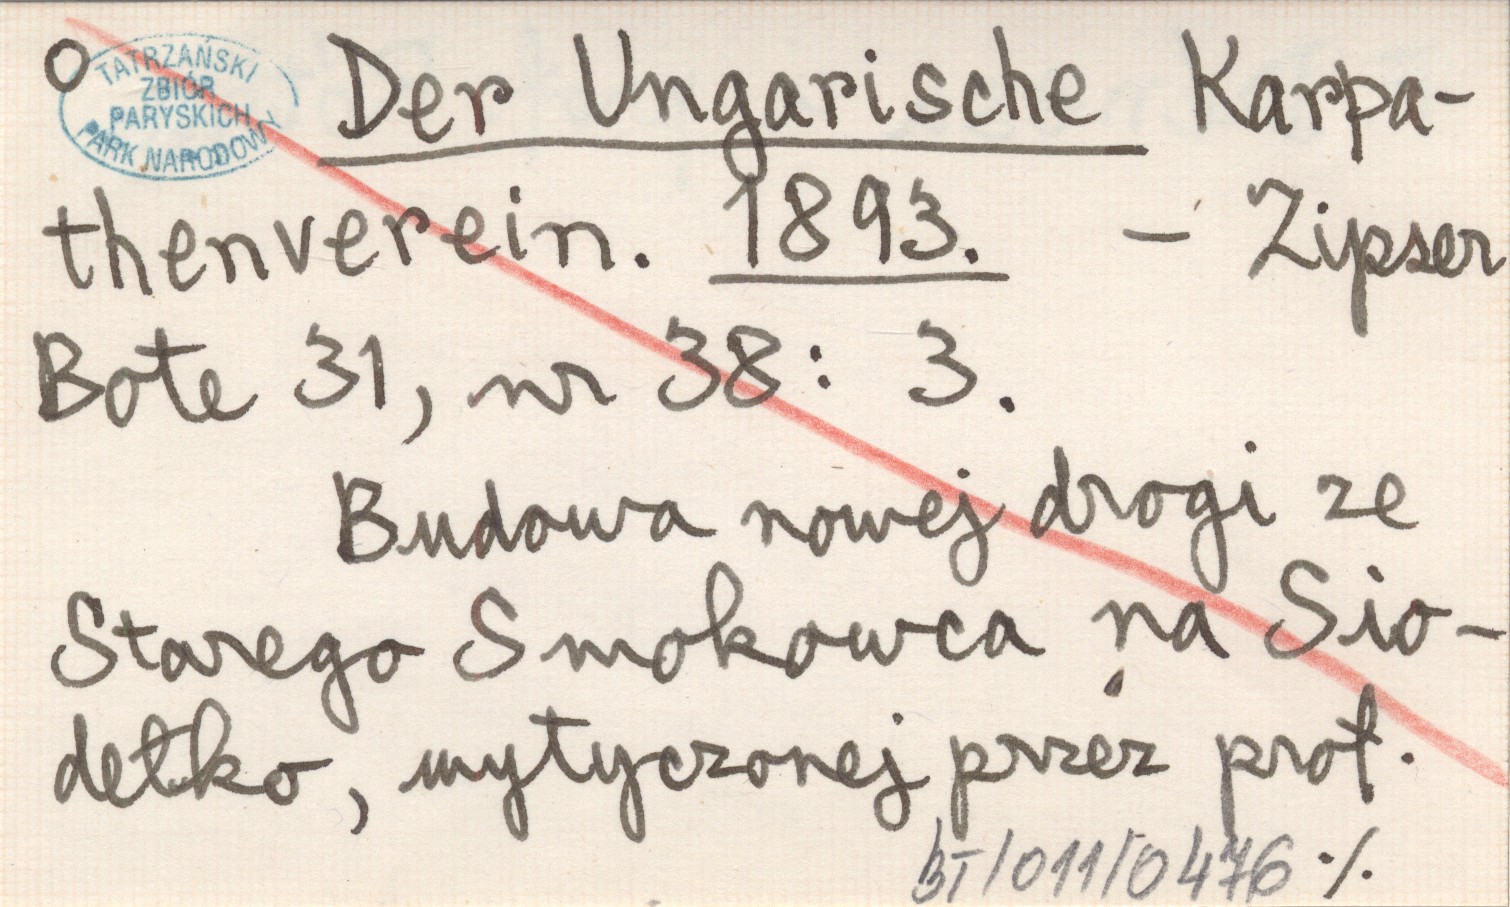 O TATRZAŃSKI
ZBIÓR
PARYSKICH
PARK NARODOWY
Der Ungarische Karpa-
thenverein. 1893. – Zipser
Bote 31, nr 38: 3.
Budowa nowej drogi ze
Starego Smokowca na Sio-
dełko, wytyczonej przez prof.
BT/011/0476 ./.